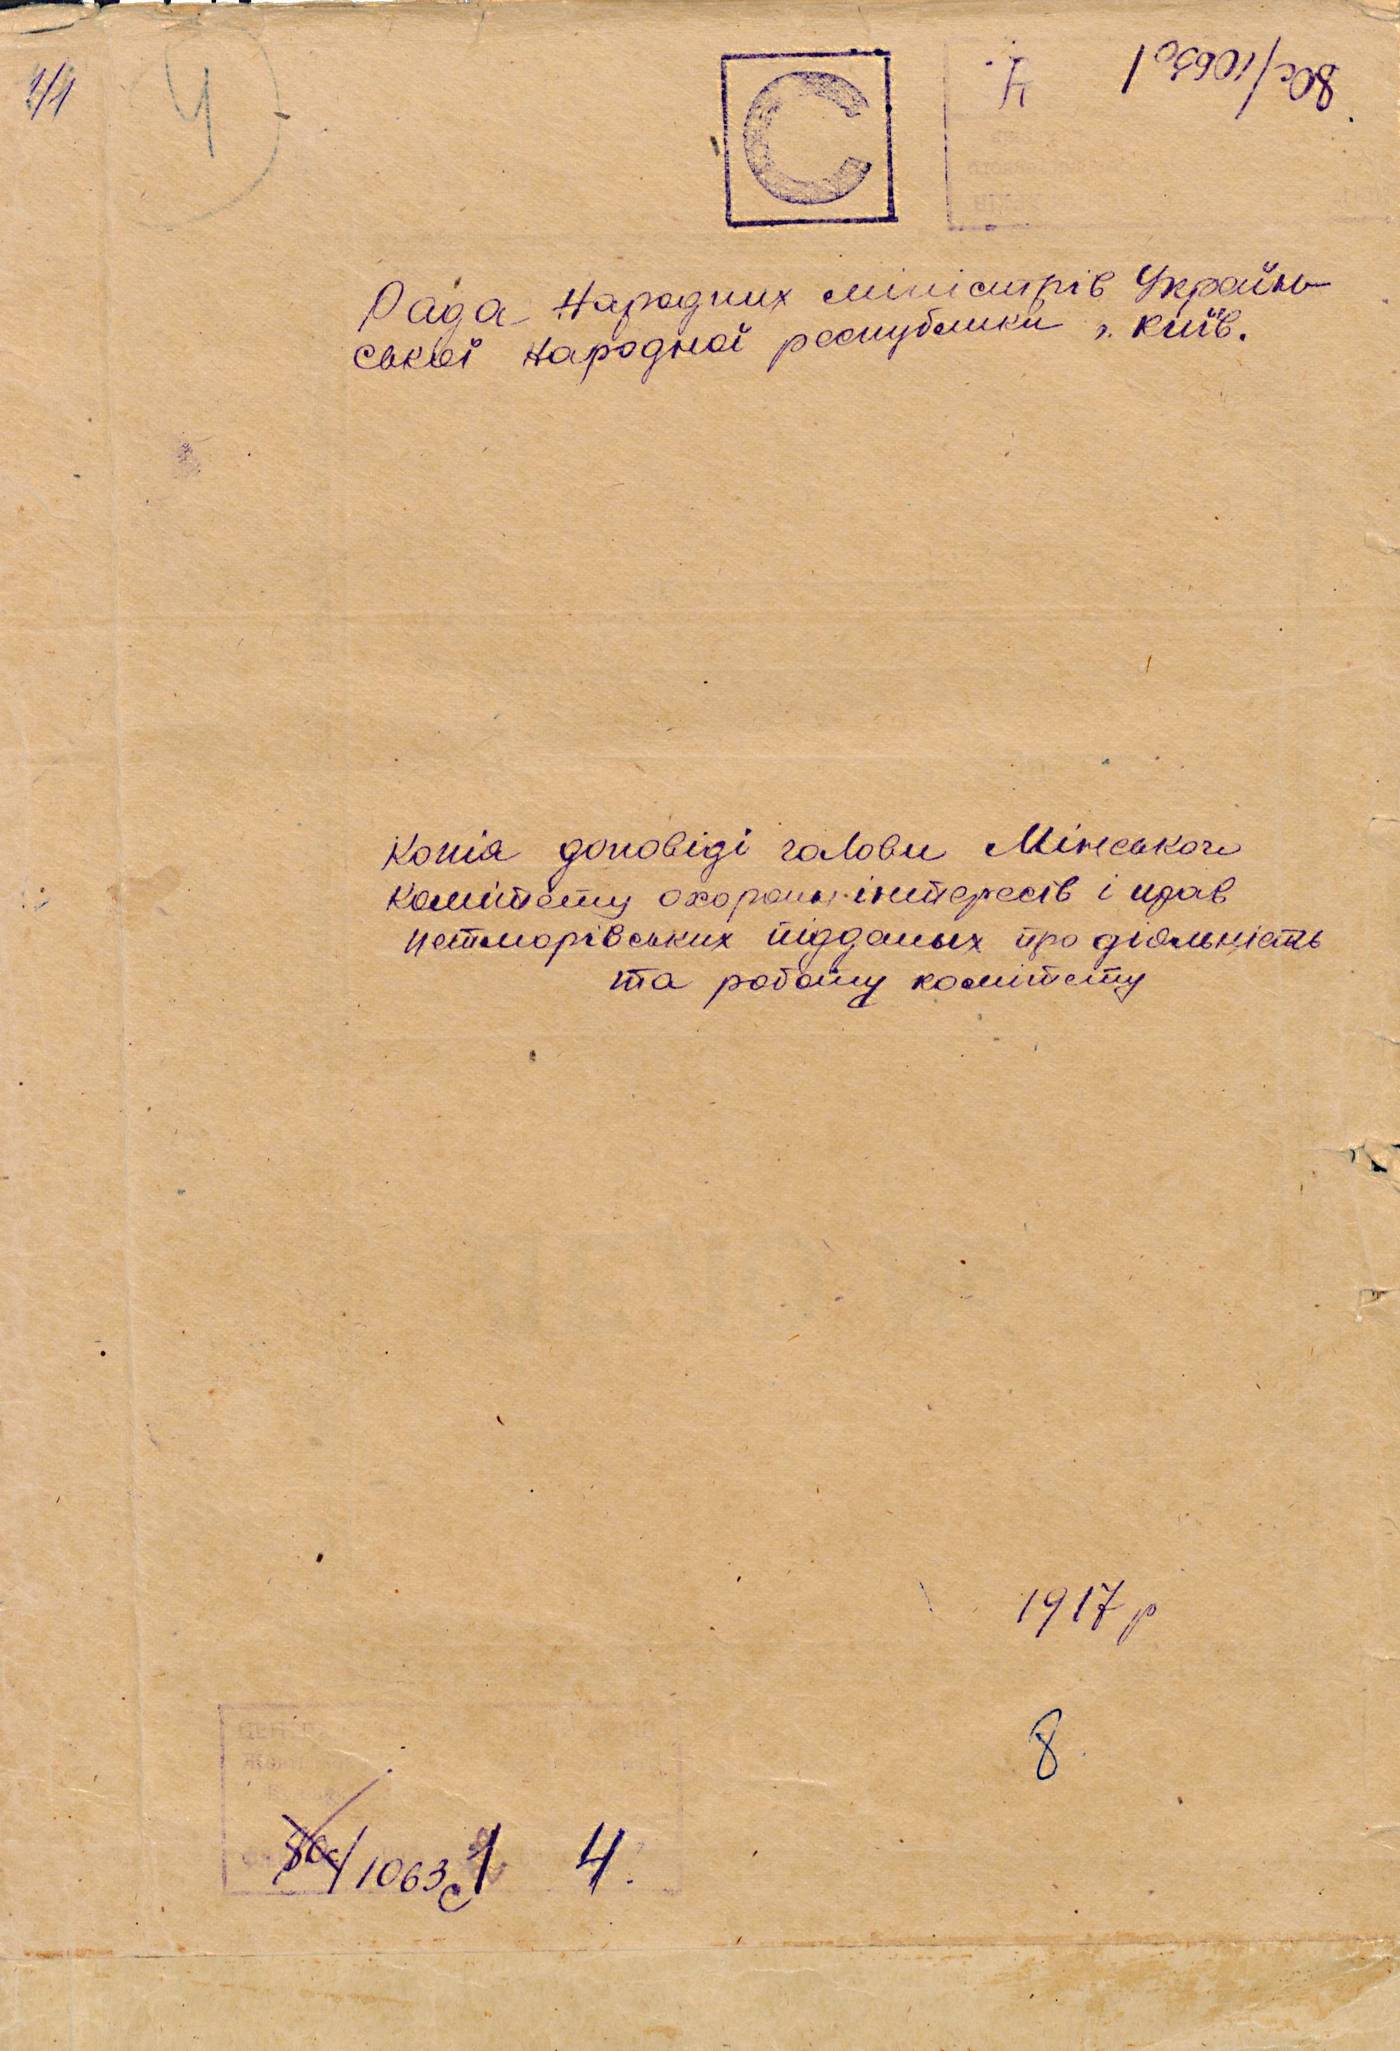 4
С
4
80с/1063с/
Рада Народних міністрів Україн-
ської Народної республіки м. Київ.
Копія доповіді голови Мінського
Комітету охорони інтересів і прав
петлюрівських підданих про діяльність
та роботу комітету
1917 р
8
80с/1063с/1 4.